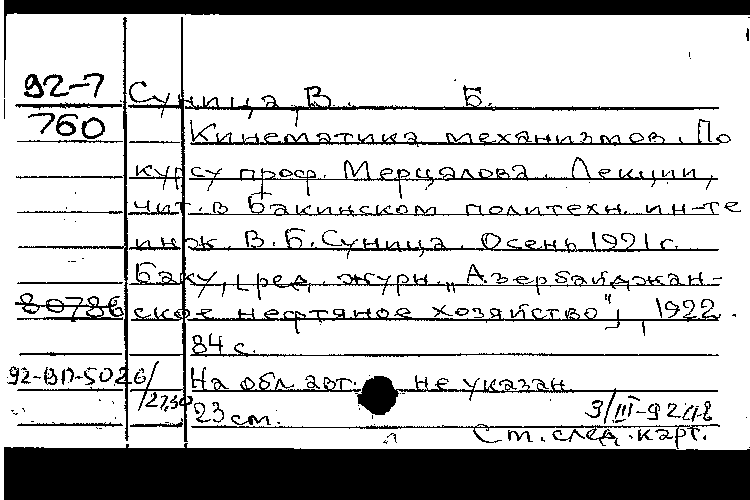 92-7 Суница, В. Б.
760 Кинематика механизмов. По
курсу проф. Мерцалова. Лекции,
чит. в Бакинском политехн. ин-те
инж. В. Б. Суница. Осень 1921 г.
Баку, [ред. журн. „Азербайджан-
80786 ское нефтяное хозяйство"], 1922.
84 с.
92-ВП-5026/ На обл. авт. не указан
/27,50 23 см. 3/III-92
См. след. карт.